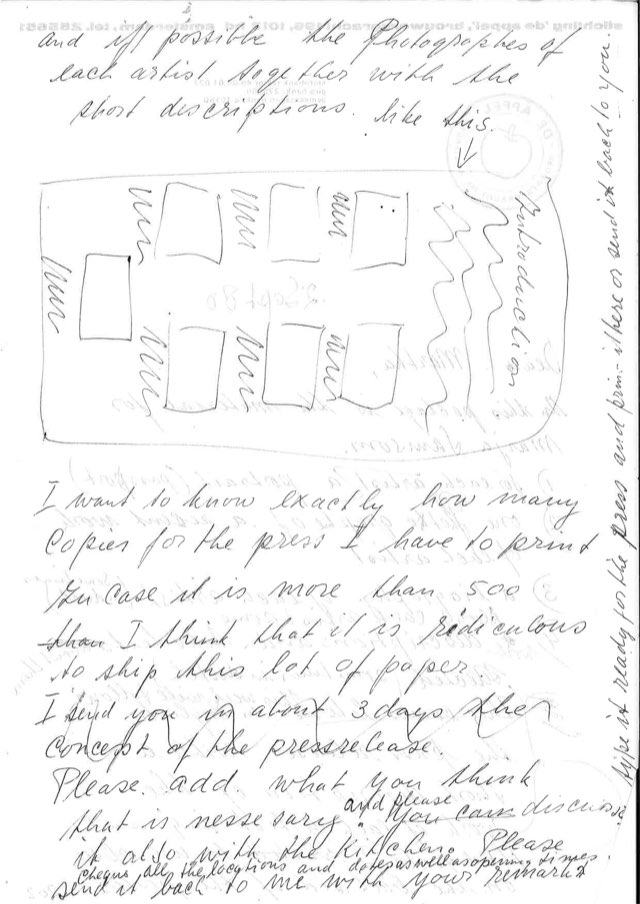 and if possible the Photographes of
each artist together with the
short descriptions. like this.
Introduction
I want to know exactly how many
copies for the press I have to print
In case it is more than 500
than I think that it is ridiculous
to ship this lot of paper.
I send you in about 3 days the
concept of the pressrelease.
Please add what you think
that is nessesary and please you can discuss
it also with the Kitchen. Please
cheque all the locations and dates as well as opening times.
send it back to me with your remarks
type it ready for the press and print it here or send it back to you.
stichting 'de appel', brouwersgracht 196, 1013 hd amsterdam, tel. 255651
DE APPEL
2 Sept 80
Dear Martha,